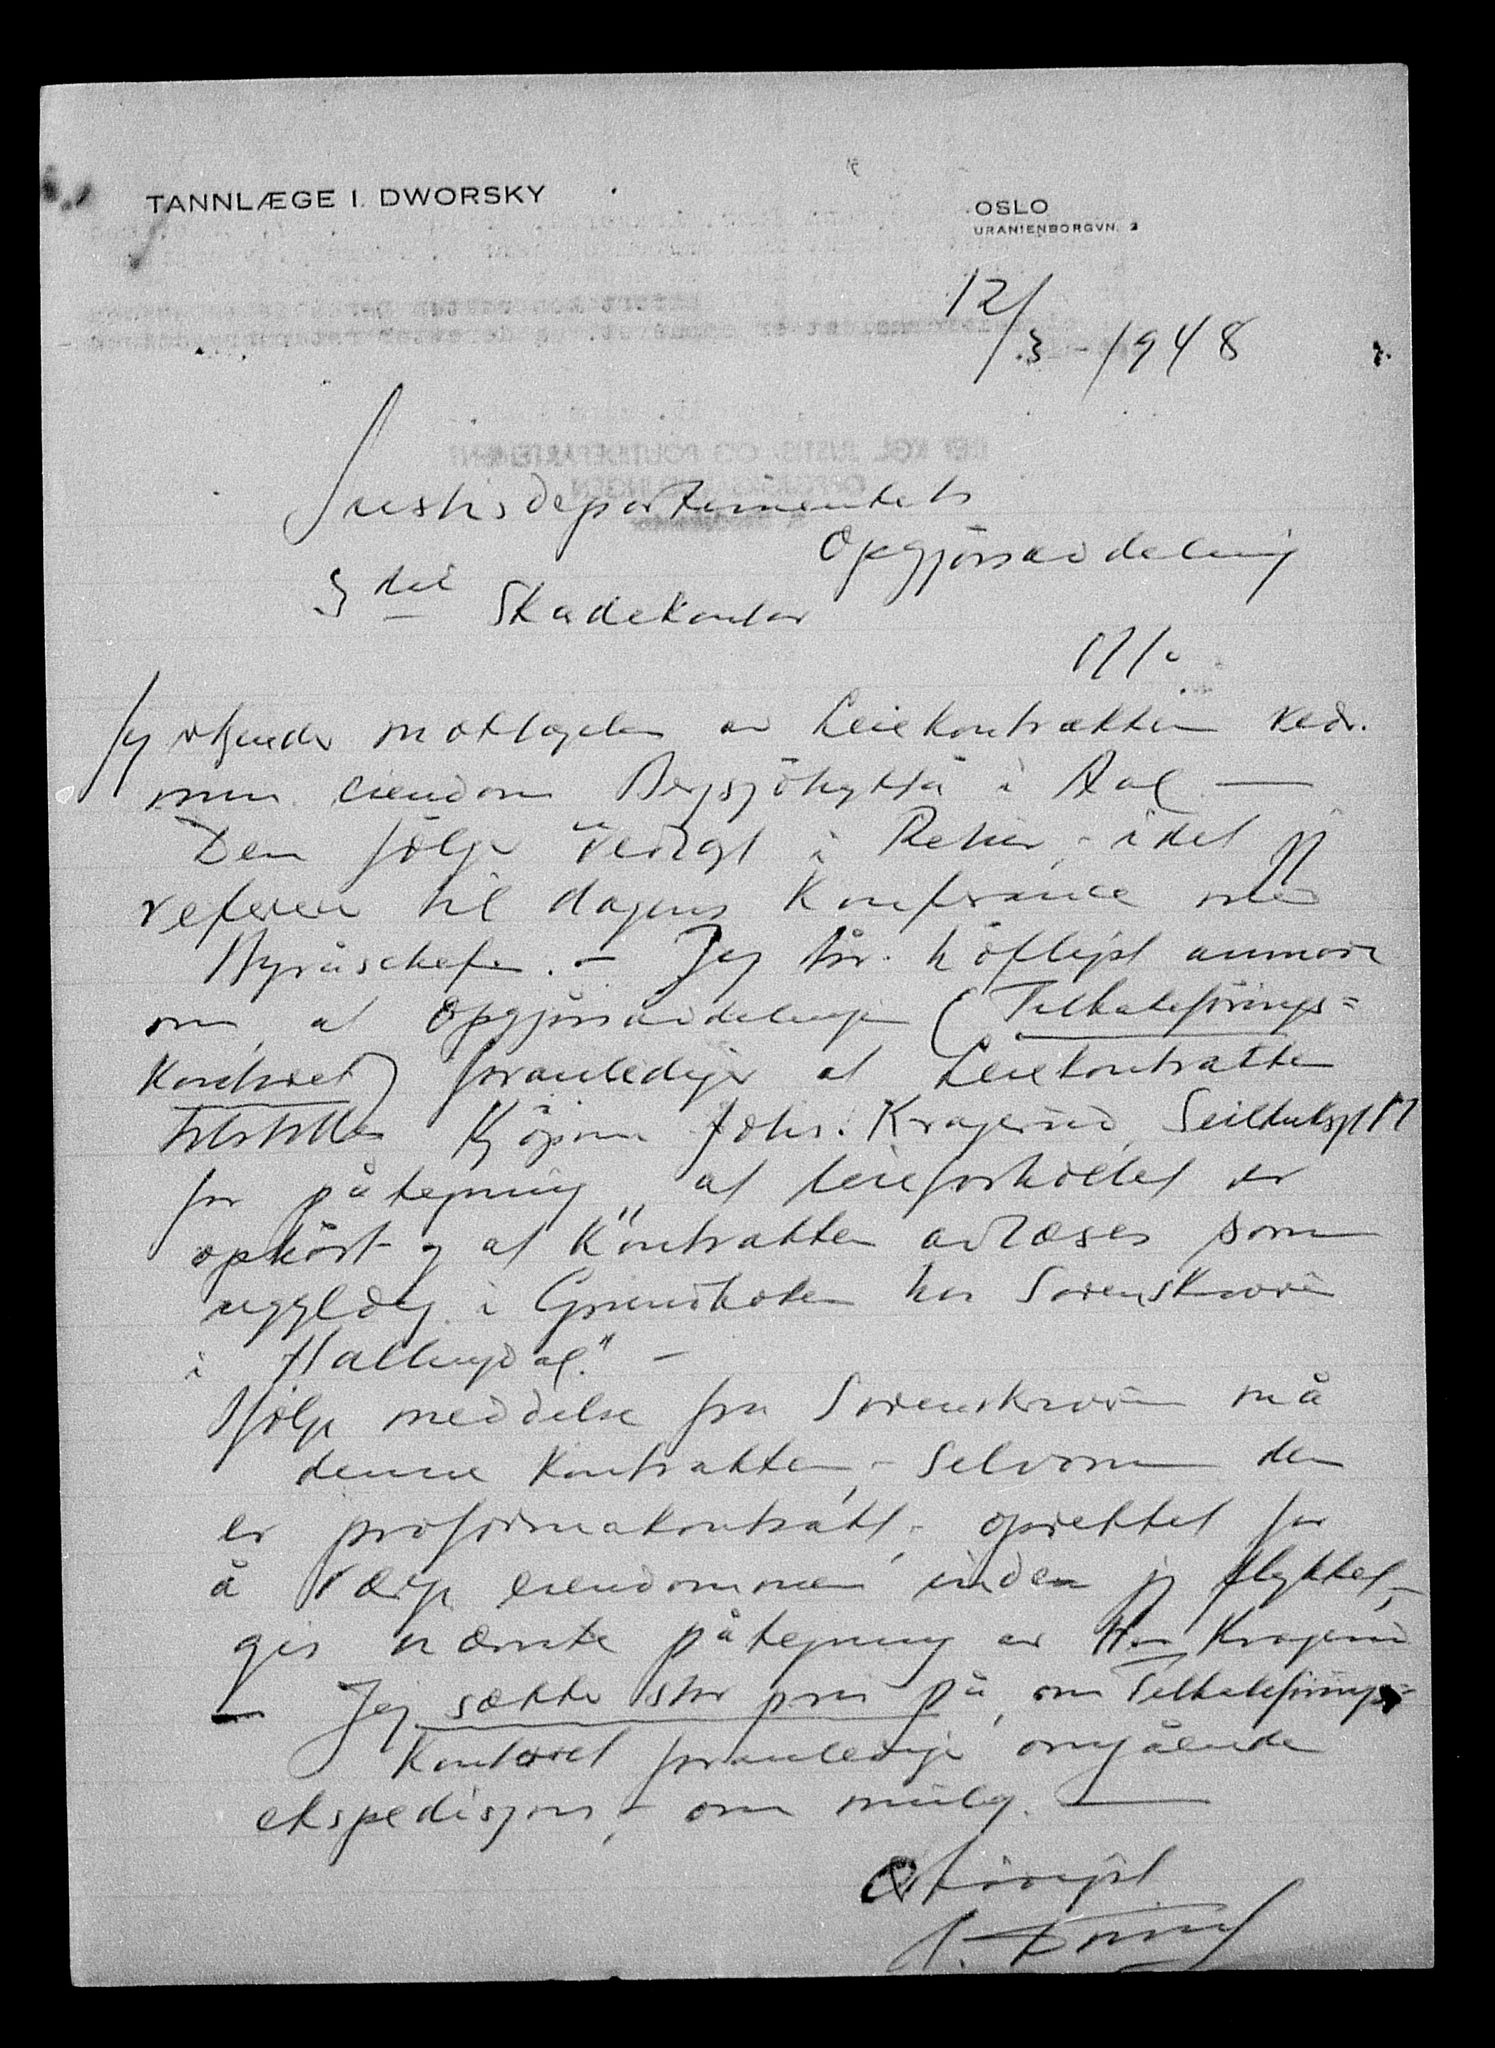 TANNLÆGE I. DWORSKY
OSLO
URANIENBORGVN. 2
12/3-1948
Justisdepartementets
Opgjørsavdeling
Skadekontor
Jeg erkjender mottagelsen av Leiekontrakten vedr.
min eiendom Bergsjøhytta i Aal. —
Den følger vedlagt i Retur, - idet jeg
referer til dagens Konferance med
Byråschefen. - Jeg tør høfligst anmode
om, at Opgjørsavdelingen (Tilbakeførings=
Kontoret) foranlediger at Leiekontrakten
tilstilles Kjøpm. Johs. Kragerud, Seilduksgt 17
for påtegning "at leieforholdet er
ophørt og at Kontrakten avlæses som
ugyldig i Grundboken hos Sorenskriveren
i Hallingdal." -
Ifølge meddelse fra Sorenskriveren må
denne Kontrakten, - selvom den
er proformakontrakt, - oprettet for
å verge eiendommen inden jeg flyktet, -
gis nævnte påtegning av Hr. Kragerud
- Jeg sætter stor pris på, om Tilbakeførings=
Kontoret foranlediger omgående
ekspedisjon, - om mulig. —
Ærbødigst
I. Dworsky